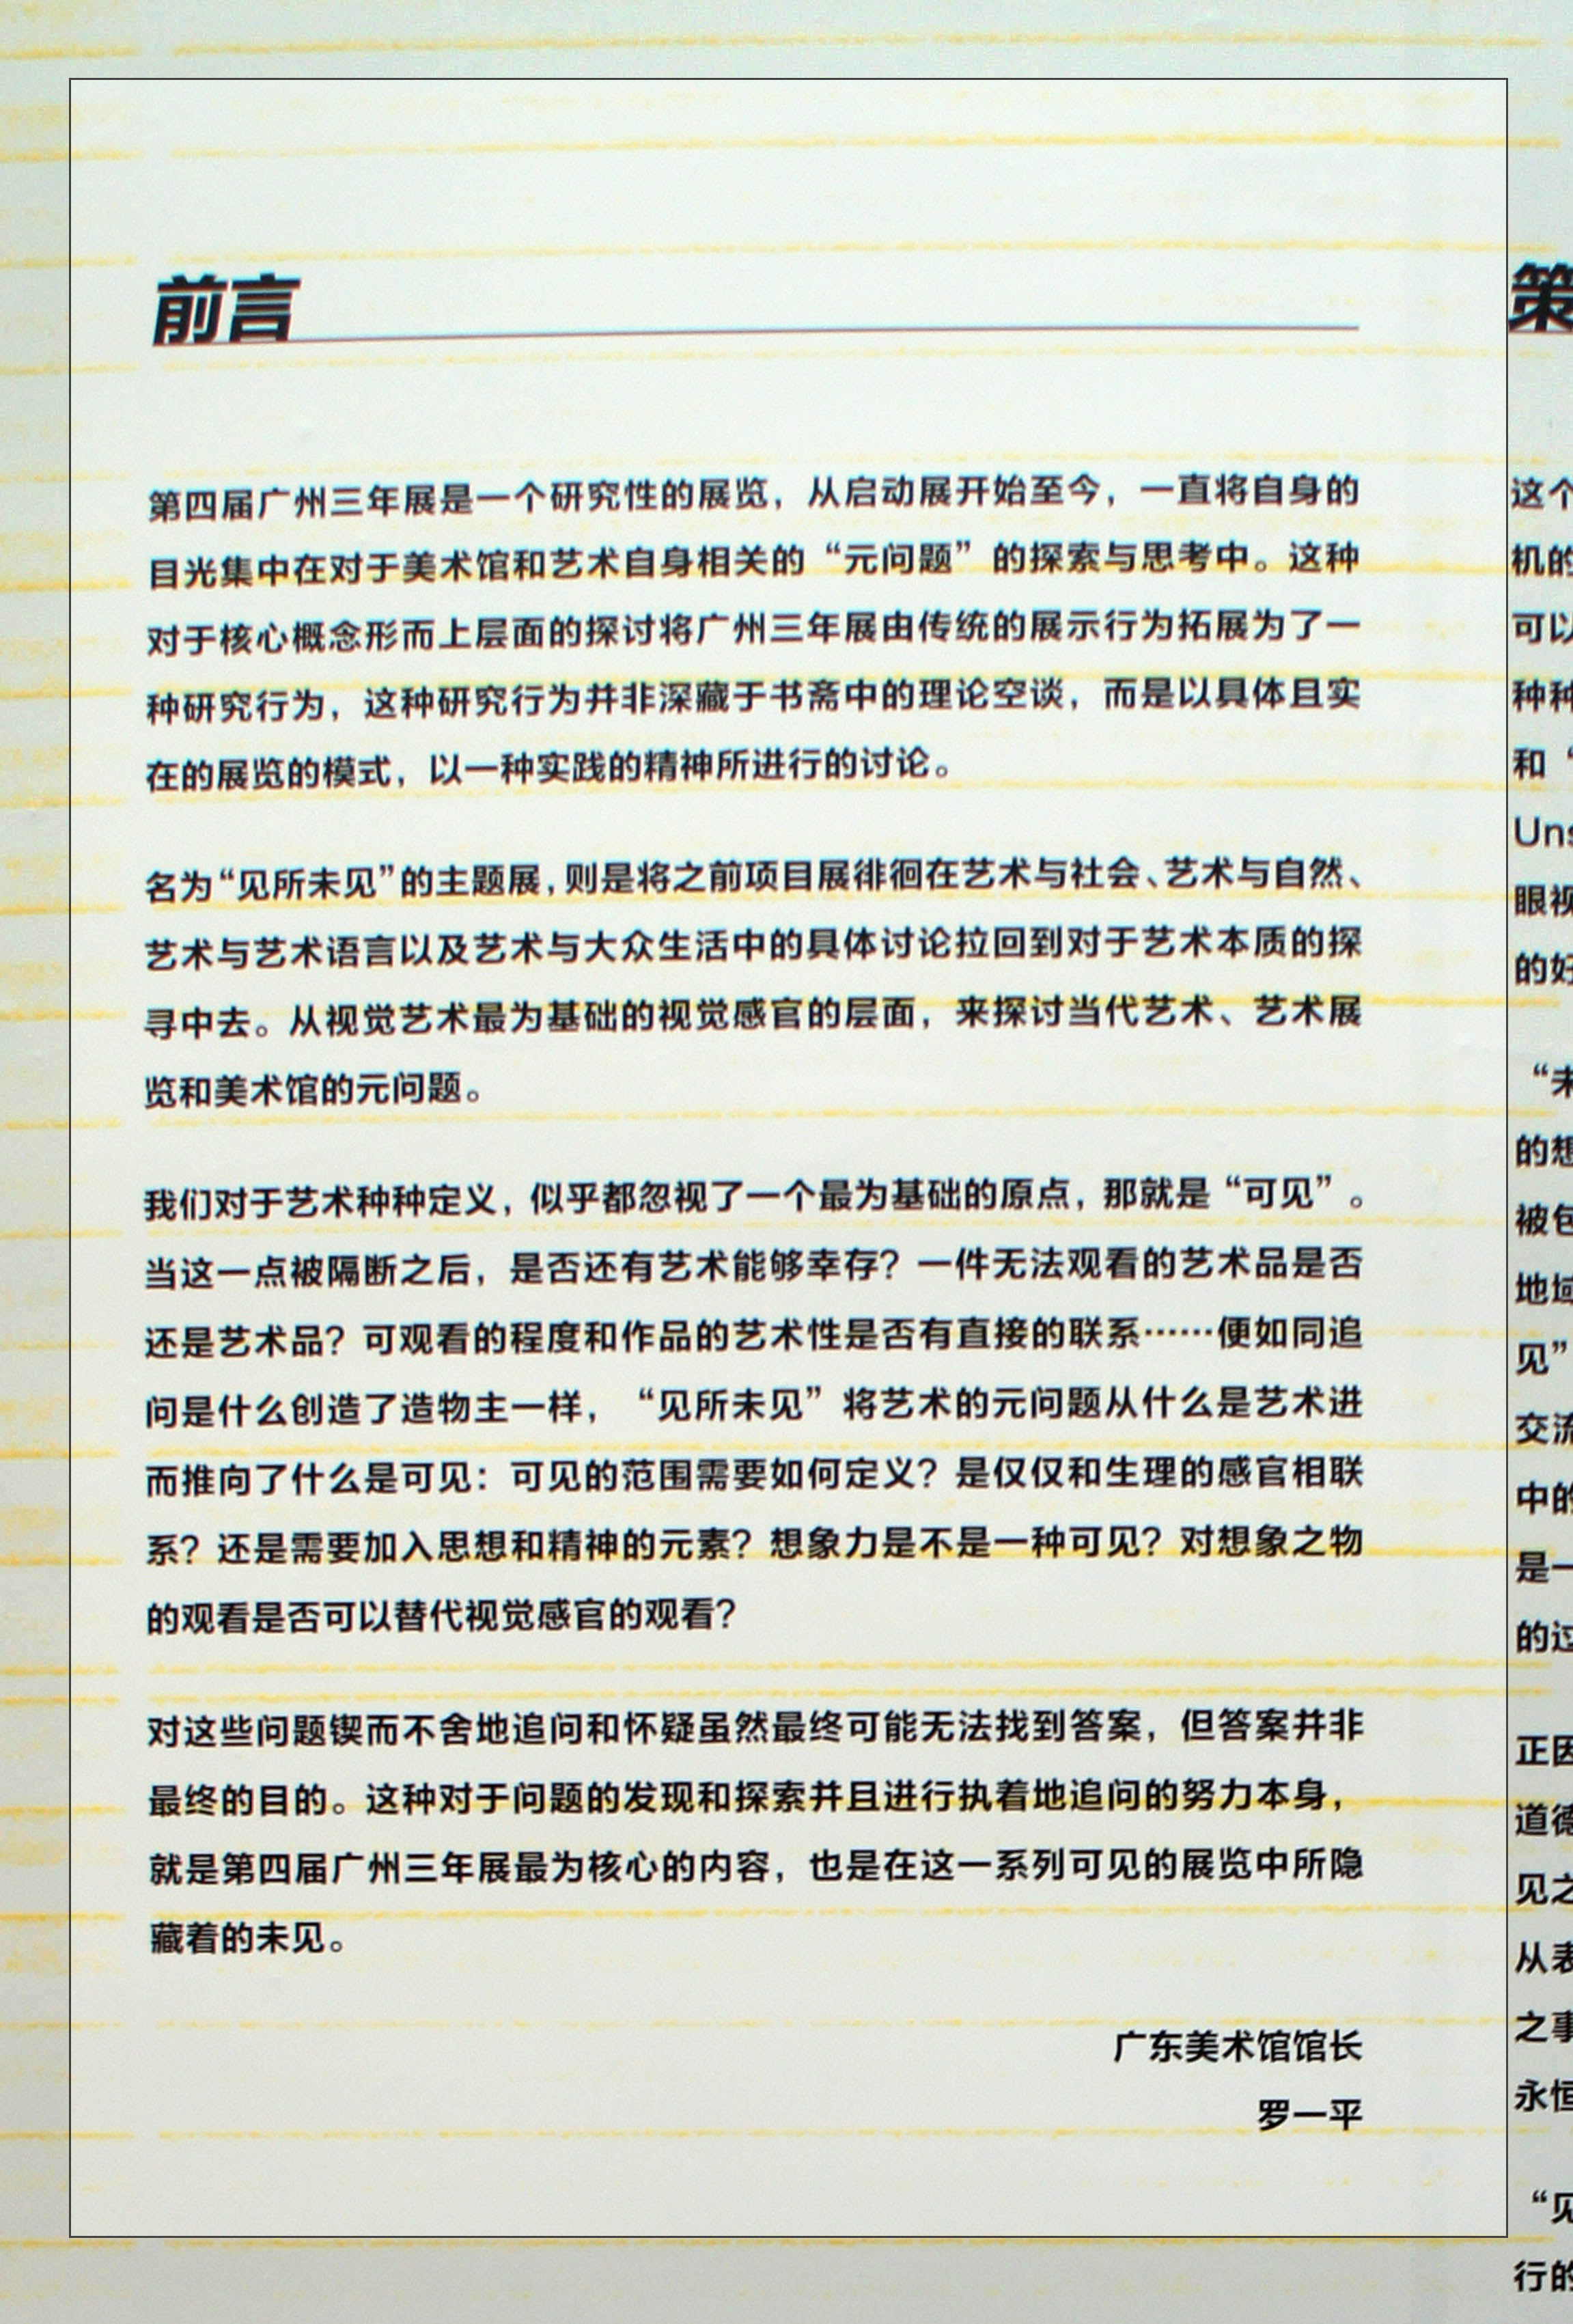 前言
第四届广州三年展是一个研究性的展览，从启动展开始至今，一直将自身的
目光集中在对于美术馆和艺术自身相关的“元问题”的探索与思考中。这种
对于核心概念形而上层面的探讨将广州三年展由传统的展示行为拓展为了一
种研究行为，这种研究行为并非深藏于书斋中的理论空谈，而是以具体且实
在的展览的模式，以一种实践的精神所进行的讨论。
名为“见所未见”的主题展，则是将之前项目展徘徊在艺术与社会、艺术与自然、
艺术与艺术语言以及艺术与大众生活中的具体讨论拉回到对于艺术本质的探
寻中去。从视觉艺术最为基础的视觉感官的层面，来探讨当代艺术、艺术展
览和美术馆的元问题。
我们对于艺术种种定义，似乎都忽视了一个最为基础的原点，那就是“可见”。
当这一点被隔断之后，是否还有艺术能够幸存？一件无法观看的艺术品是否
还是艺术品？可观看的程度和作品的艺术性是否有直接的联系……便如同追
问是什么创造了造物主一样，“见所未见”将艺术的元问题从什么是艺术进
而推向了什么是可见：可见的范围需要如何定义？是仅仅和生理的感官相联
系？还是需要加入思想和精神的元素？想象力是不是一种可见？对想象之物
的观看是否可以替代视觉感官的观看？
对这些问题锲而不舍地追问和怀疑虽然最终可能无法找到答案，但答案并非
最终的目的。这种对于问题的发现和探索并且进行执着地追问的努力本身，
就是第四届广州三年展最为核心的内容，也是在这一系列可见的展览中所隐
藏着的未见。
广东美术馆馆长
罗一平
策
这个
机的
可以
种种
和“
Uns
眼视
的好
“未
的想
被包
地域
见”
交流
中的
是一
的过
正因
道德
见之
从表
之事
永恒
“见
行的